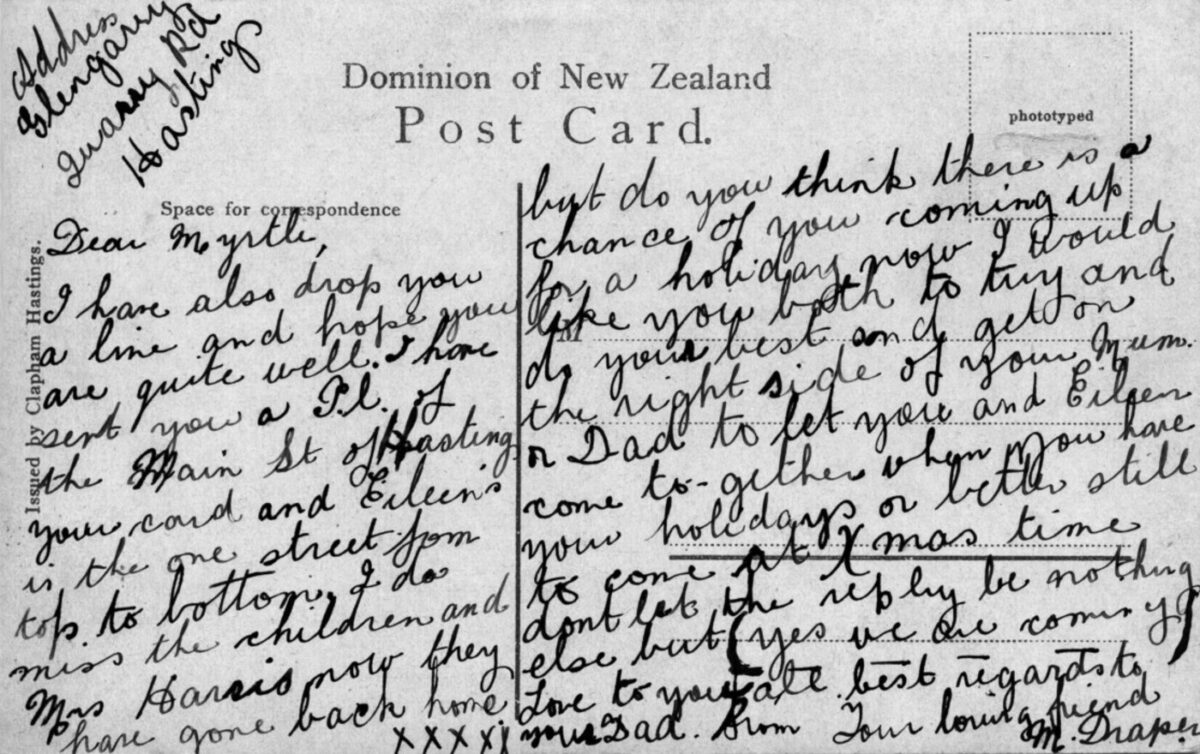 Address
Glengarry
Quarry Rd
Hastings
Dominion of New Zealand
Post Card.
phototyped
Space for correspondence
Issued by Clapham Hastings.
Dear Myrtle,
I have also drop you
a line and hope you
are quite well. I have
sent you a P.C. of
the Main St of Hastings
your card and Eileen's
is the one street from
top to bottom. I do
miss the children and
Mrs Harris now they
have gone back home
XXXXX
but do you think there is a
chance of you coming up
for a holiday now I would
like you both to try and
do your best and get on
the right side of your Mum.
or Dad to let you and Eileen
come to-gether when you have
your holidays or better still
to come at Xmas time
dont let the reply be nothing
else but (yes we are coming)
Love to you all best regards to
your Dad. From Your loving friend
M. Draper